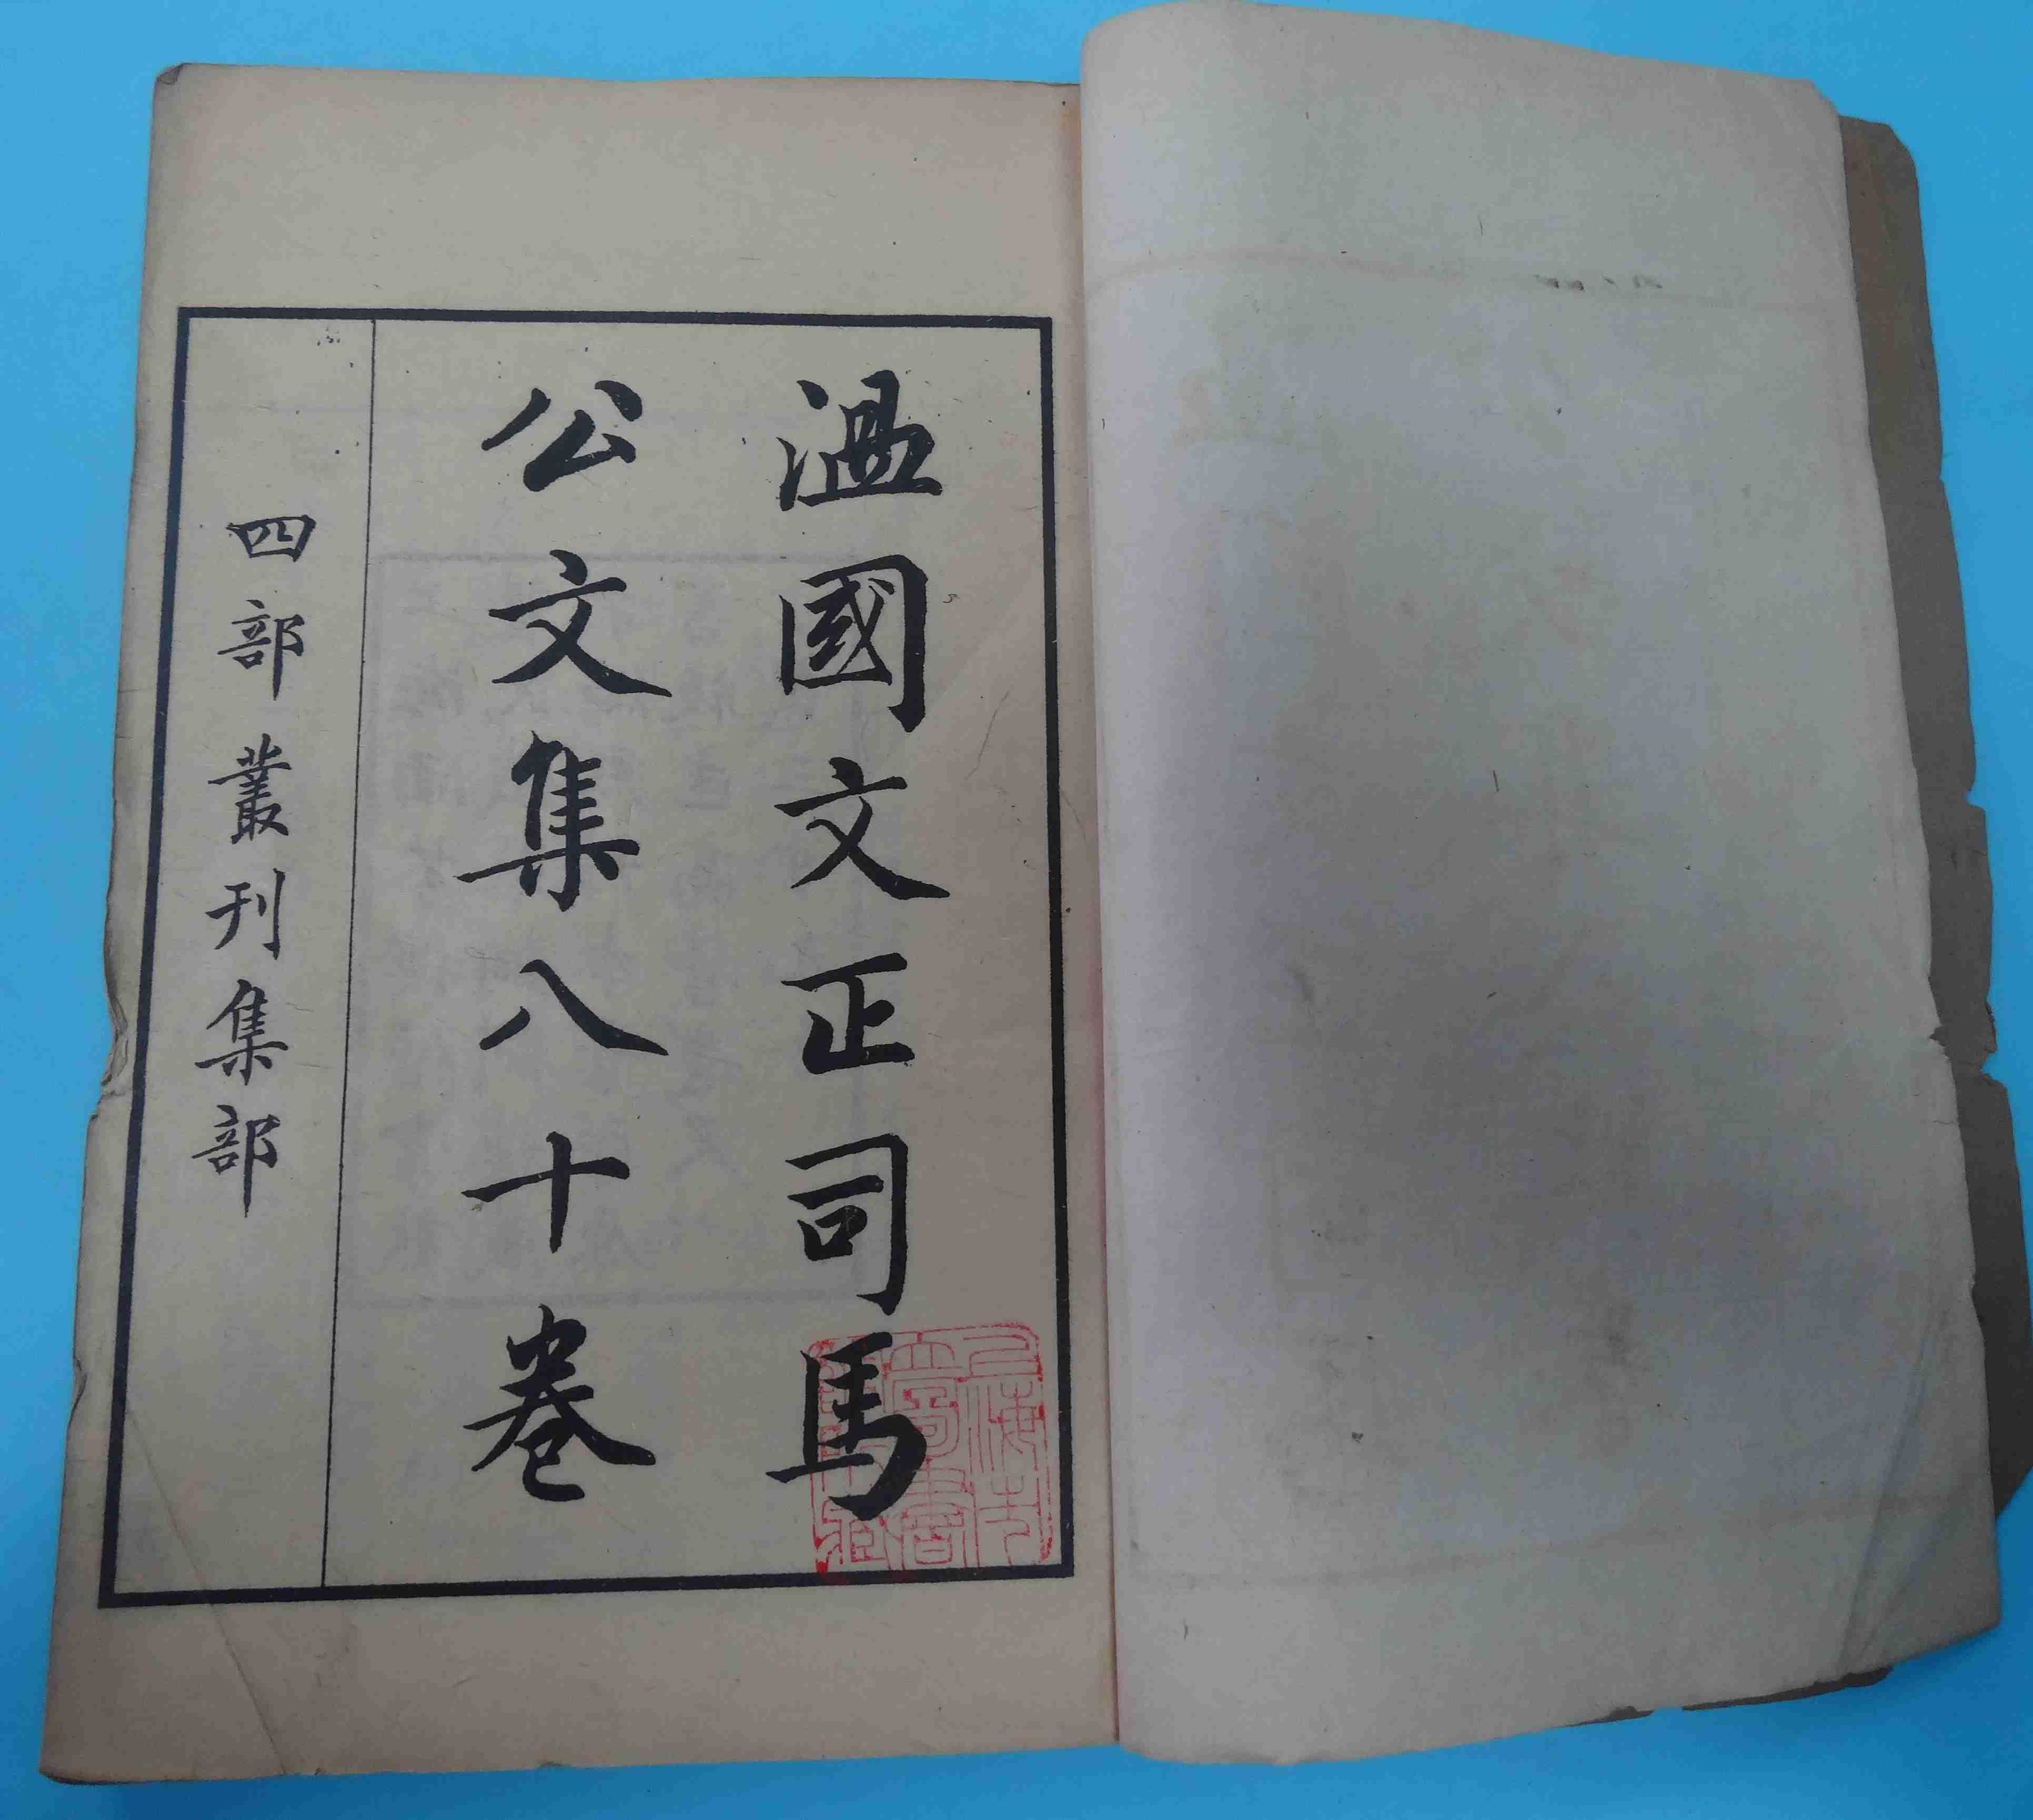 溫國文正司馬
公文集八十卷
四部叢刊集部